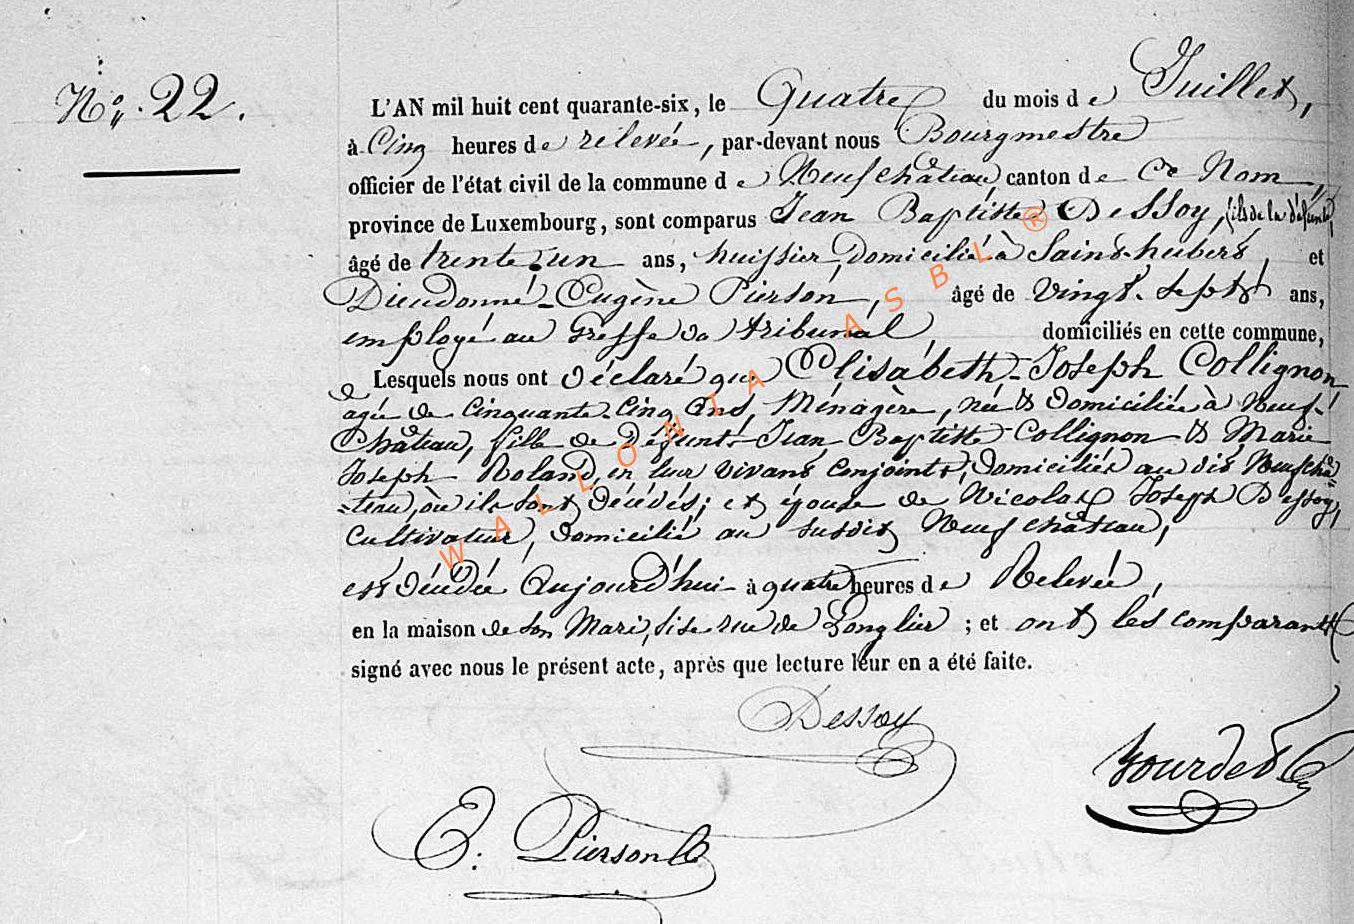 N° 22.
L'AN mil huit cent quarante-six, le Quatre du mois de Juillet,
à Cinq heures de relevée, par-devant nous Bourgmestre
officier de l'état civil de la commune de Neufchâteau, canton de Ce Nom,
province de Luxembourg, sont comparus Jean Baptiste Dessoy, fils de la défunte,
âgé de trente-un ans, huissier, Domicilié à Saint-hubert, et
Dieudonné-Eugène Pierson, âgé de vingt-sept ans,
employé au Greffe du tribunal, domiciliés en cette commune,
Lesquels nous ont déclaré que Elisabeth-Joseph Collignon
agée de Cinquante-Cinq Ans, Ménagère, née & Domiciliée à Neuf-
Château, fille de Défunts Jean Baptiste Collignon & Marie
Joseph Roland, en leur vivant Conjoints, Domiciliés au dit Neufchâ-
-teau, où ils sont Décédés; et épouse de Nicolas Joseph Dessoy,
Cultivateur, Domicilié au susdit Neufchâteau,
est Décédée Aujourd'hui à quatre heures de Relevée,
en la maison de son Mari, sise rue de Longlier; et ont les comparants
signé avec nous le présent acte, après que lecture leur en a été faite.
Dessoy
Bourdet
E. Pierson
WALLONIA ASBL ®